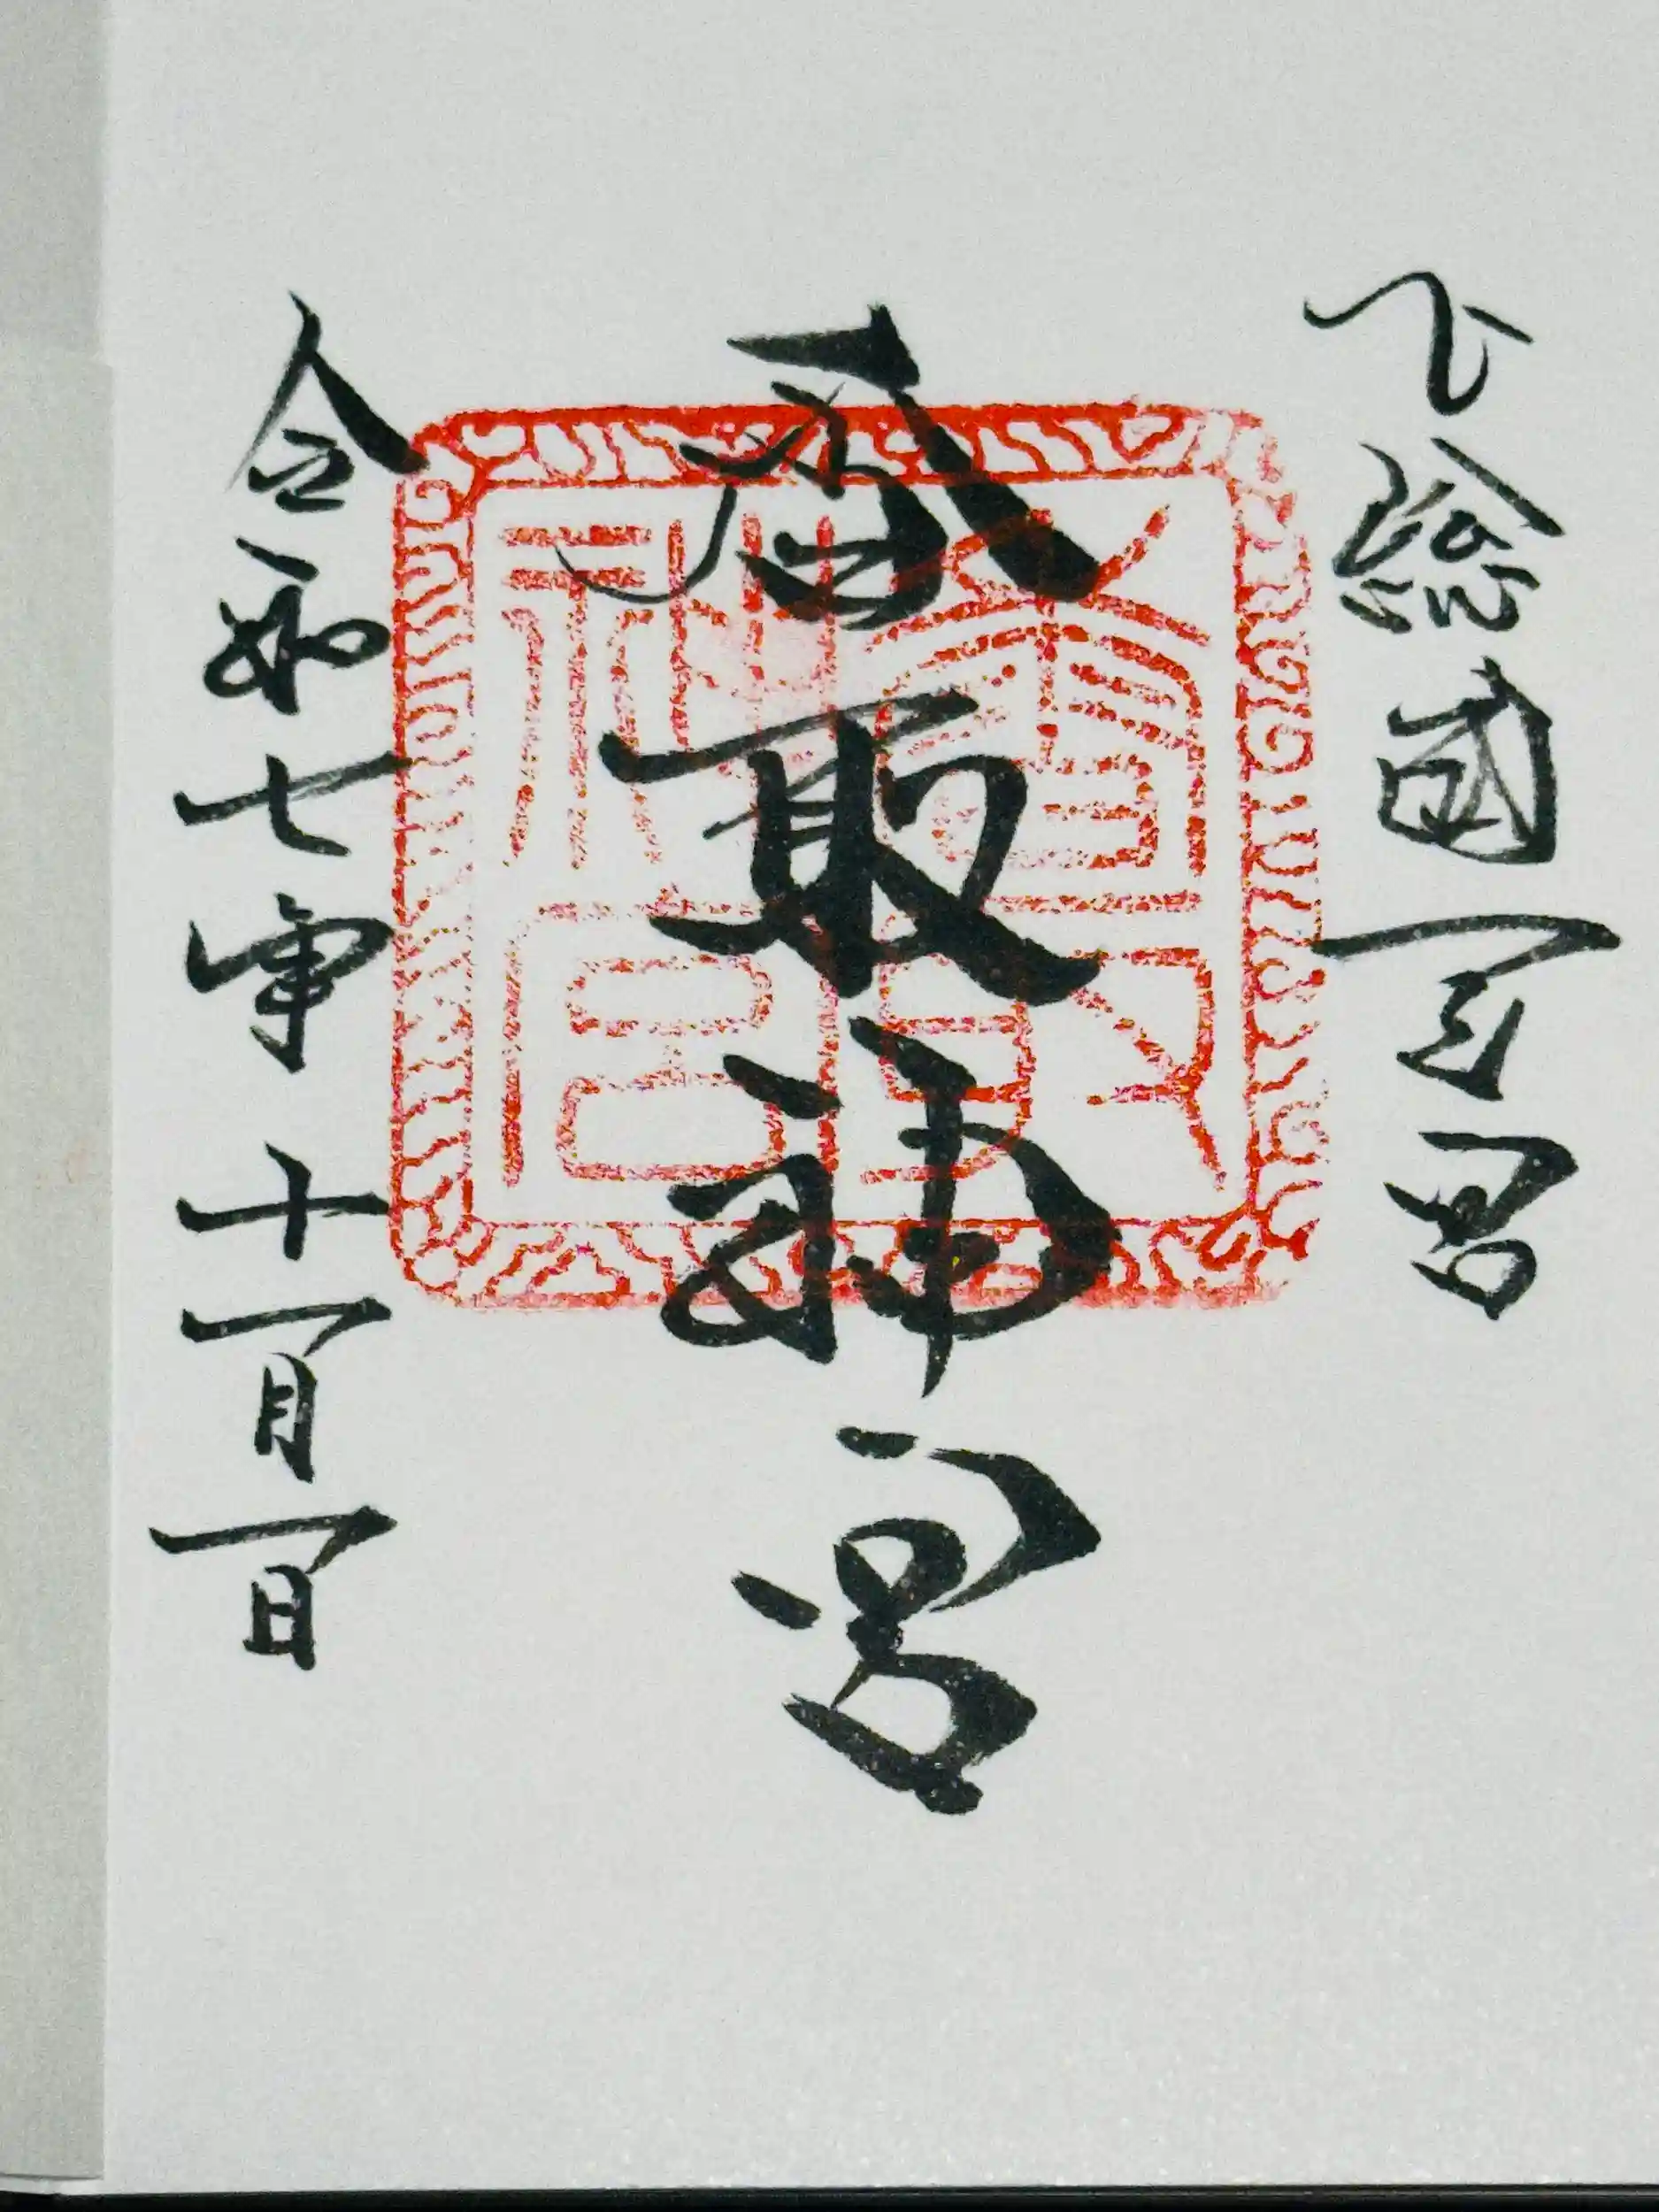 下総國一之宮
香取神宮
令和七年十一月一日
香取神宮